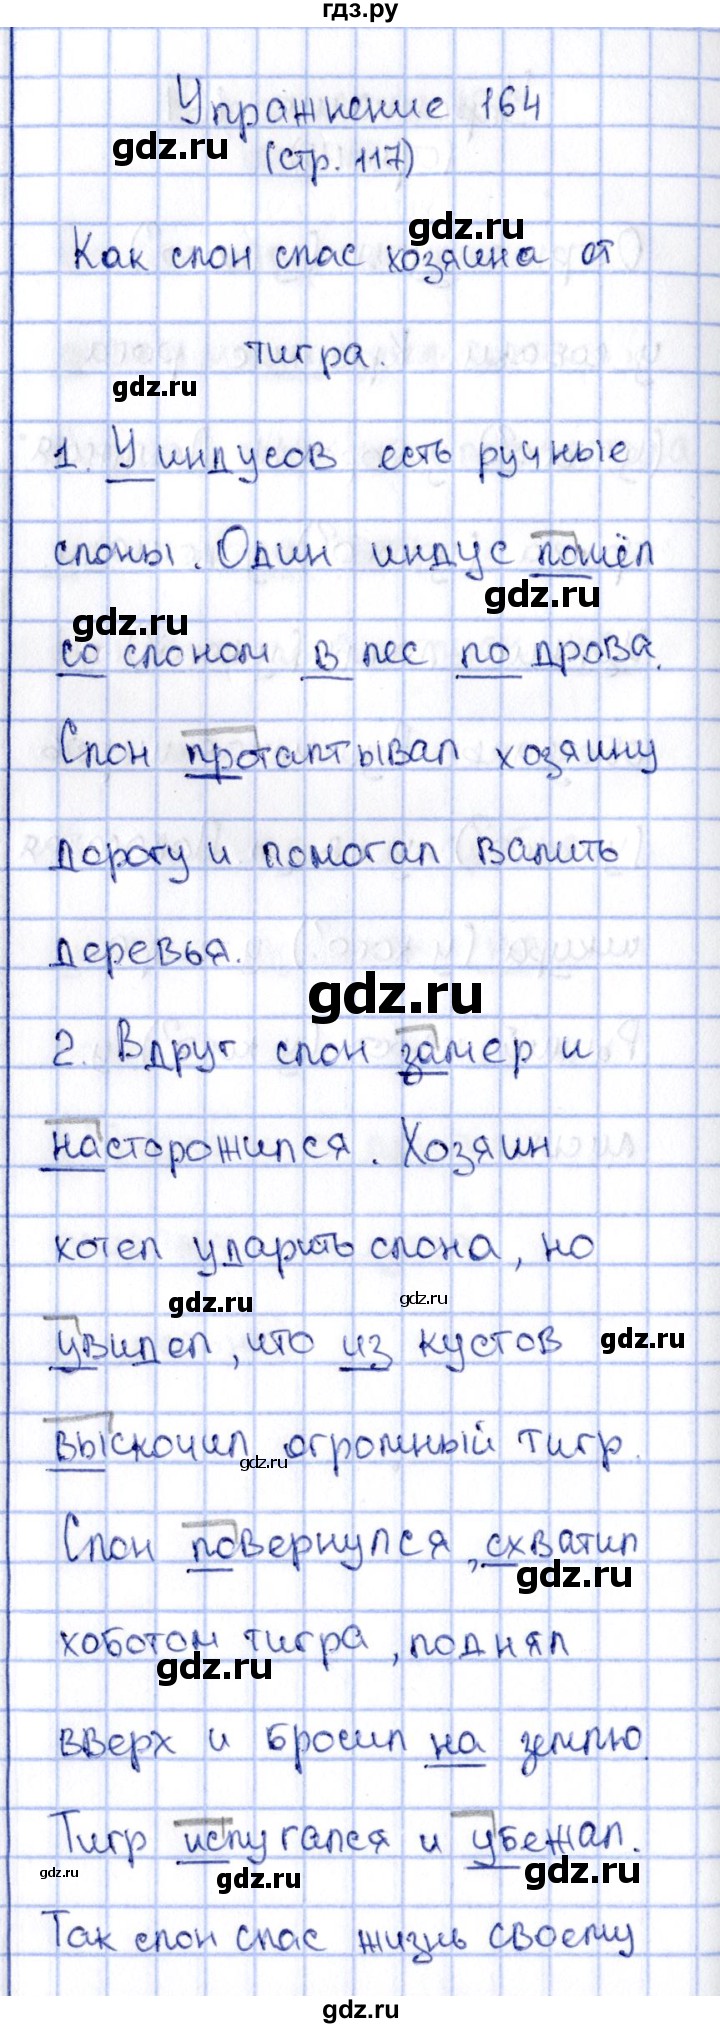 гдз.ру
Упражнение 164
gdz.ru
(стр. 117)
gdz.ru
Как слон спас хозяина от
тигра.
gdz.ru
1. У индусов есть ручные
слоны. Один индус пошёл
gdz.ru
gdz.ru
со слоном в лес по дрова.
Слон протаптывал хозяину
дорогу и помогал валить
деревья.
gdz.ru
2. Вдруг слон замер и
насторожился. Хозяин
хотел ударить слона, но
gdz.ru
gdz.ru
увидел, что из кустов
gdz.ru
выскочил огромный тигр.
gdz.ru
Слон повернулся, схватил
gdz.ru
хоботом тигра, поднял
gdz.ru
вверх и бросил на землю.
Тигр испугался и убежал.
gdz.ru
gdz.ru
gdz.ru
Так слон спас жизнь своему
gdz.ru